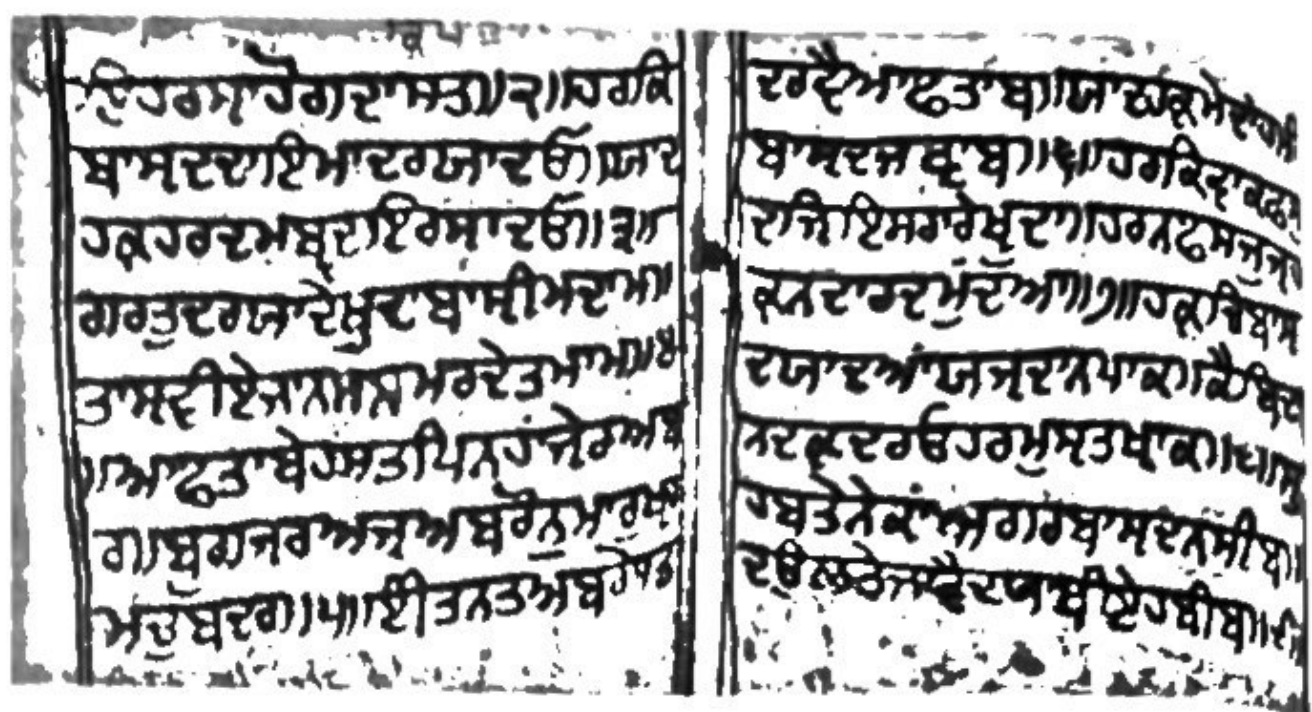 ਇਹਰਸਾਹੈਰਾਦਾਸਤ॥੨॥ਹਰਕਿ
ਬਾਸਦਦਾਇਮਾਦਰਯਾਦਓ॥ਯਾਦ
ਹਕਹਰਦਮਬੁਦਾਇਰਸਾਦਓ॥੩॥
ਗਰਤੁਦਰਯਾਦੇਖੁਦਾਬਾਸੀਮਦਾਮ॥
ਤਾਸਵੀਏਜਾਨਮਨਮਰਦੇਤਮਾਮ॥੪
॥ਆਫਤਾਬੇਹਸਤਪਿਨਹਾਂਜੇਰਅਬ
ਰ॥ਬੁਗਜਰਅਜਅਬਰੋਨੁਮਾਰੁਖ
ਮਚੁੰਬਦਰ॥੫॥ਈਤਨਤਅਬਰੇਸਤ
ਦਰਵੈਆਫਤਾਬ॥ਯਾਦਹਕਮੇਦਾਹਮੀ
ਬਾਸਦਜਵਾਬ॥੬॥ਹਰਕਿਵਾਕਫ
ਦਜਿਇਸਰਾਰੇਖੁਦਾ॥ਹਰਨਫਸਜੁਜ
ਕਨਦਾਰਦਮੁੰਦਆ॥੭॥ਹਕਚਿਬਾਸ
ਦਯਾਦਆਂਯਜਦਾਨਪਾਕ॥ਕੈਬਿਦਾ
ਨਦਕਦਰਓਹਰਮੁਸਤਖਾਕ॥੮॥ਸੁ
ਹਬਤੇਨੇਕਾਂਅਗਰਬਾਸਦਨਸੀਬ॥
ਦਉਲਤੇਜਾਵੈਦਯਾਬੀਏਹਬੀਬ॥